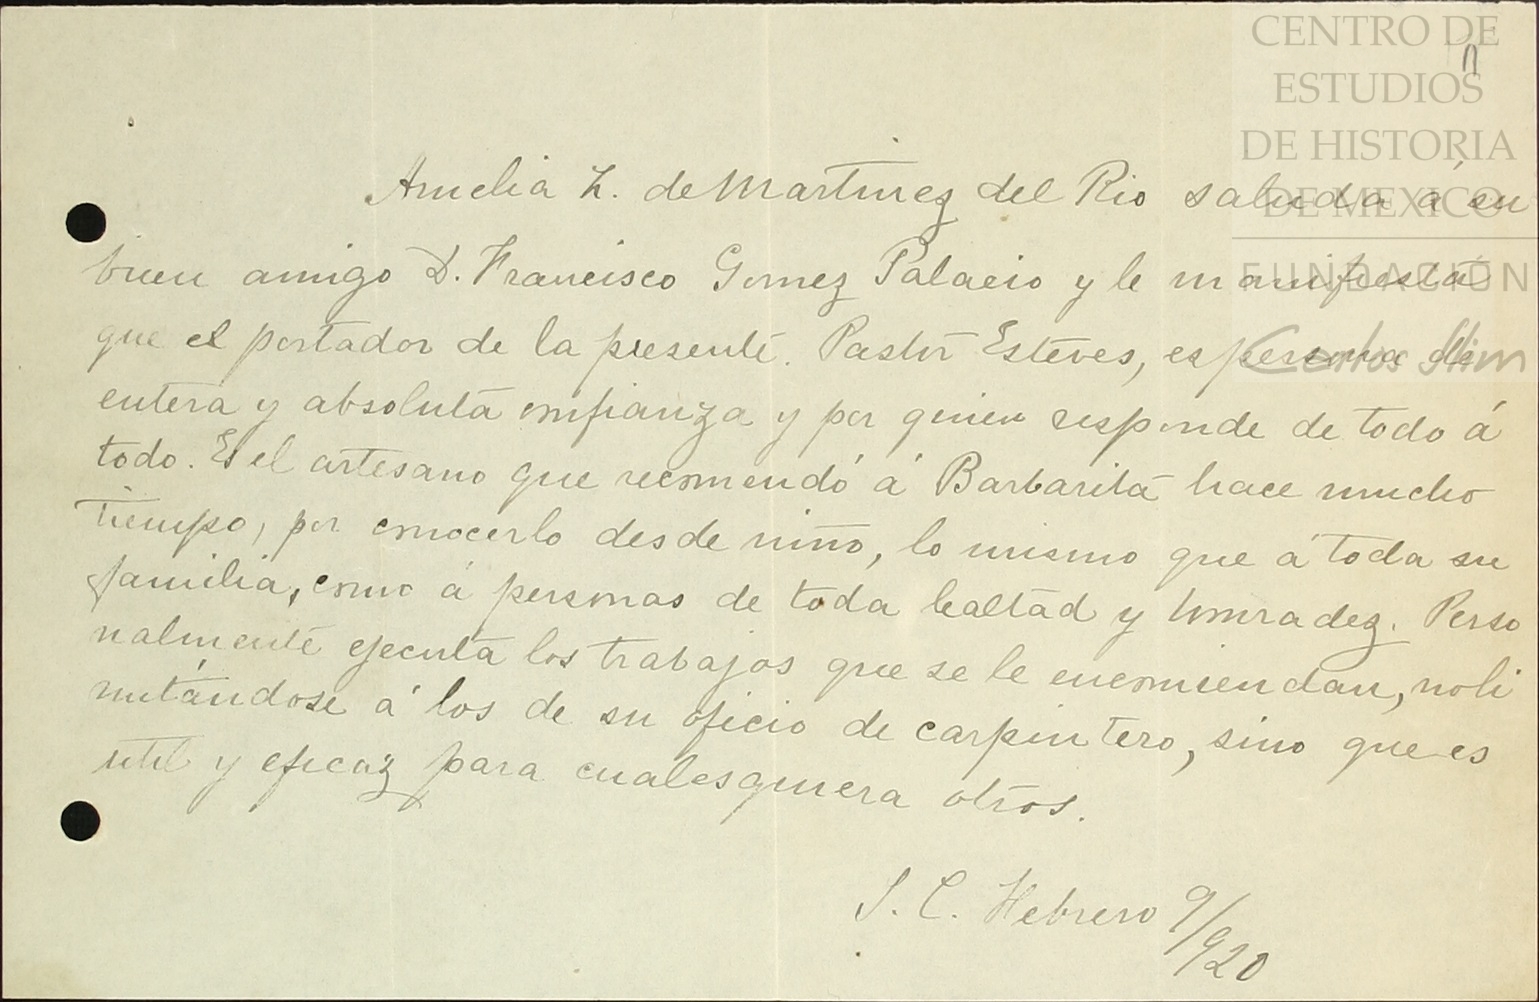 CENTRO DE
ESTUDIOS
DE HISTORIA
DE MEXICO
FUNDACIÓN
Carlos Slim
Amelia Z. de Martinez del Rio saluda á su
buen amigo D. Francisco Gomez Palacio y le manifiesta
que el portador de la presente. Pastor Esteves, es persona de
entera y absoluta confianza y por quien responde de todo á
todo. Es el artesano que recomendó á Barbarita hace mucho
tiempo, por conocerlo desde niño, lo mismo que á toda su
familia, como á personas de toda lealtad y honradez. Perso
nalmente ejecuta los trabajos que se le encomiendan, no li
mitándose á los de su oficio de carpintero, sino que es
util y eficaz para cualesquiera otros.
S. C. Febrero 9/920